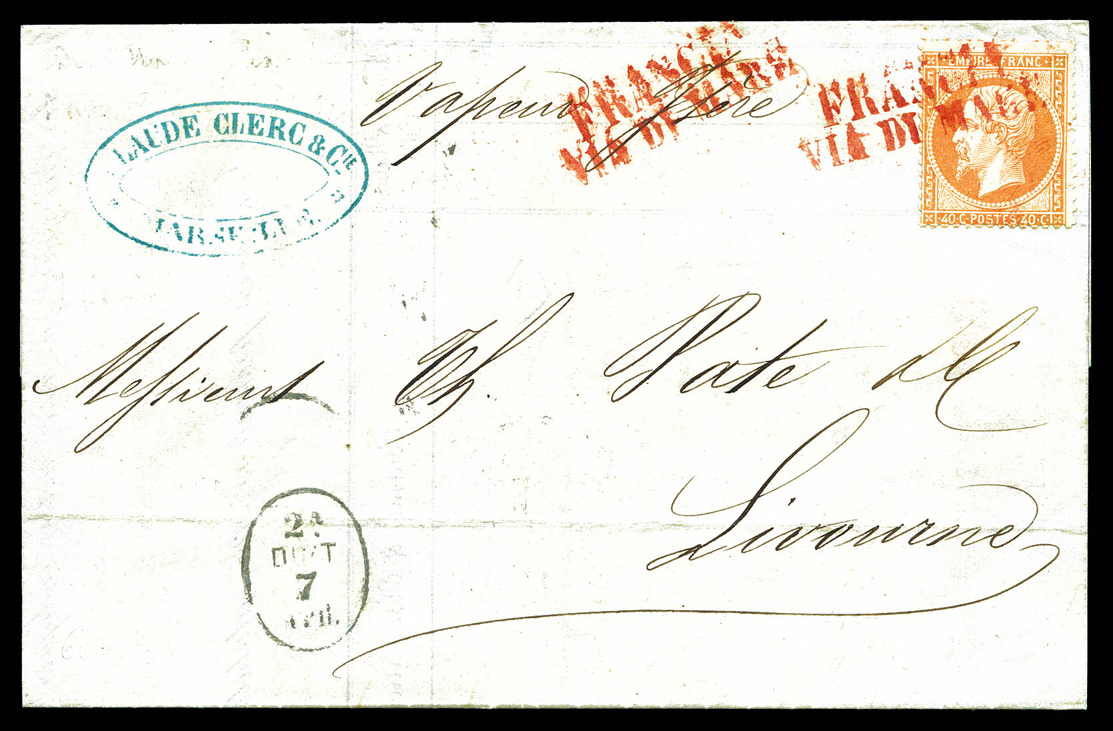 LAUDE CLERC & CIE
MARSEILLE
Vapeur
FRANCIA
VIA DI MARE
FRANCIA
VIA DI MARE
EMPIRE FRANC
40·C·POSTES·40·C
Messieurs Th. Pate & C
Livourne
2A
DIST
7
APR.